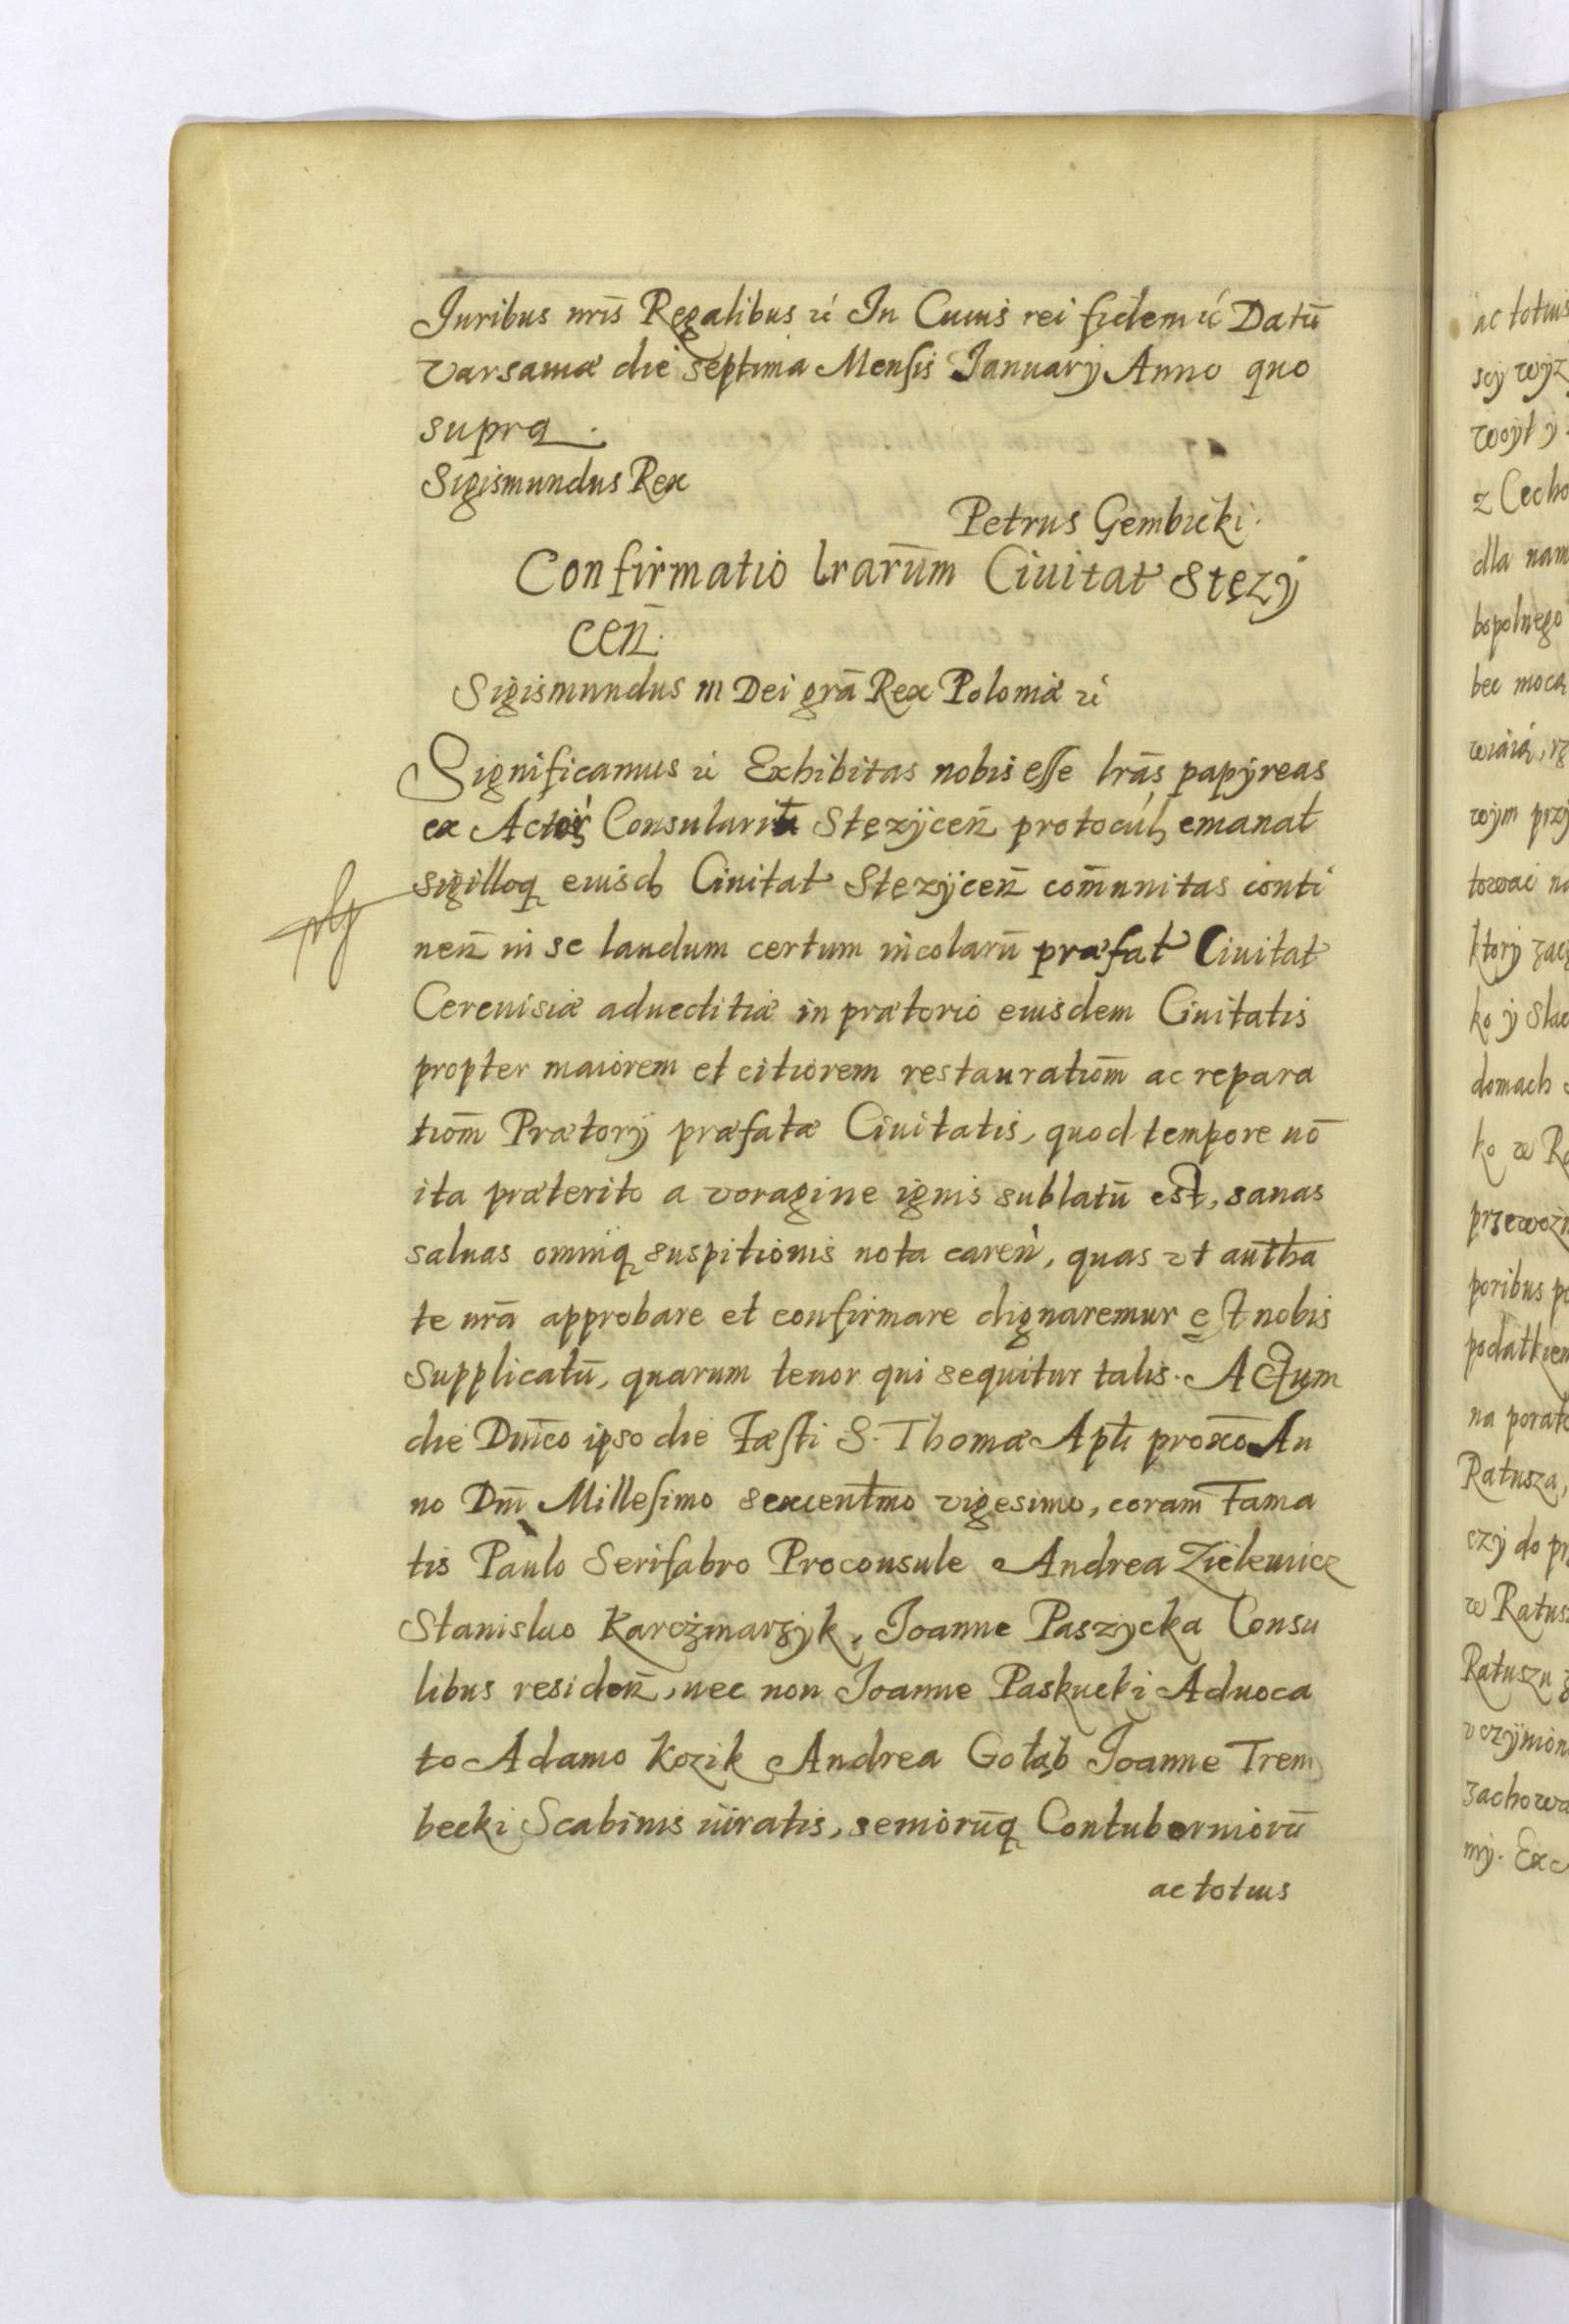 Juribus nrīs Regalibus ić In Cuius rei fidem ić Datū
Varsauiæ die septima Mensis Ianuarÿ Anno quo
supra.
Sigismundus Rex
Petrus Gembicki.
Confirmatio lrarūm Ciuitat Stęzÿ
ceñ.
Sigismundus III Dei grā Rex Poloniæ ić
Significamus ić Exhibitas nobis esse lrās papÿreas
ex Consulariū Stęzÿceñ emanat
sigilloq eiusd Ciuitat Stęzÿceñ com̄unitas conti
neñ in se laudum certum incolarū præfat Ciuitat
Cereuisiæ aduectitiæ in prætorio eiusdem Ciuitatis
propter maiorem et citiorem restauratiōm ac repara
tiōm Prætorÿ præfatæ Ciuitatis, quod tempore nō
ita præterito a voragine ignis sublatū est, sanas
saluas omniq suspitionis nota careñ, quas vt autha
te nrā approbare et confirmare dignaremur est nobis
supplicatū, quarum tenor qui sequitur talis. Actum
die Dnīco ipso die Fæsti S. Thomæ Aptī proxō An
no Dnī Millesimo sexcentmo vigesimo, coram Fama
tis Paulo Serifabro Proconsule Andrea Zielewicz
Stanislao Karczmarzÿk, Joanne Paszÿcka Consu
libus resideñ, nec non Joanne Paskucki Aduoca
to Adamo Kozik Andrea Gołąb Joanne Trem
becki Scabinis iuratis, seniorūq Contuberniorū
ac totius
ac totius
scÿ wÿz
woÿt ÿ
z Cecho
dla nam
bopolnego
bec mocą
wiáią, rz
woÿm przÿ
towac na
ktorÿ zacz
ko ÿ Slac
domach
ko w Ra
przewozn
poribus po
podatkiem
na porato
Ratusza,
czÿ do pr
w Ratus
Ratuszu z
vczÿnion
zachowa
mÿ. Ex